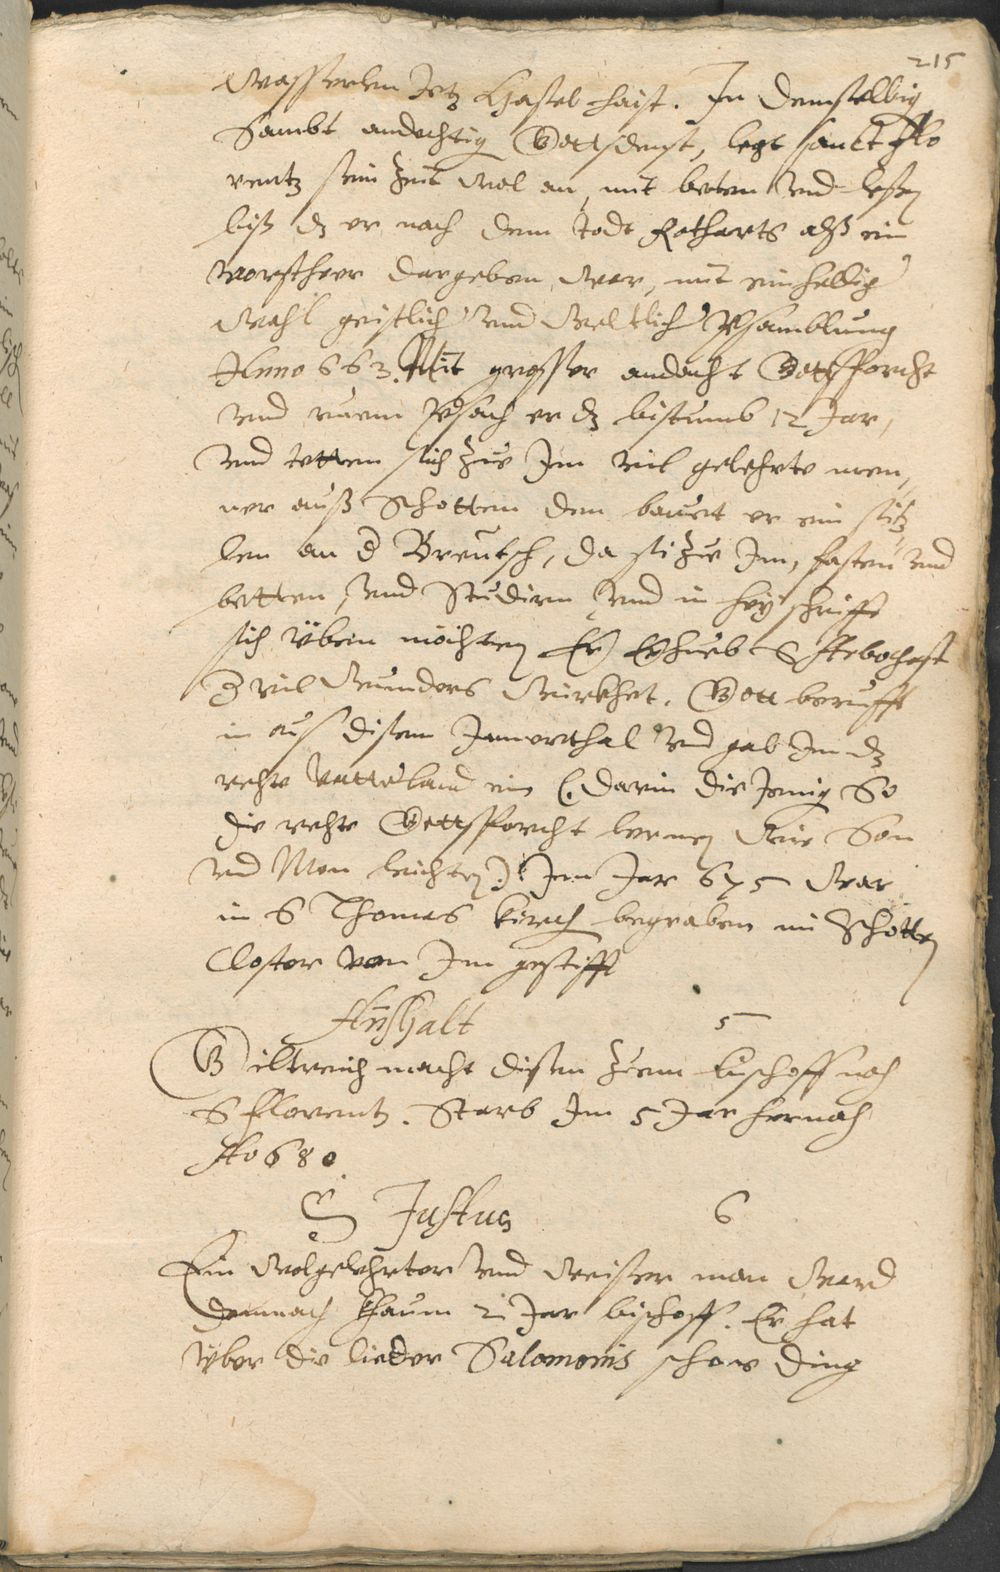 215
Wasserlen Jetz Hasel haist. In demselbig
Sambt andechtig Gottsdenst, legt sanct Flo
rentz sein Zeit wol an, mit beten und lesen
biß dz er nach dem todt Rotharts alß ein
Vorsteher dargeben, war, mit einhellig
Wahl geistlich und Weltlich Vsamblung
Anno 663. Mit grosser andacht Gottsforcht
und ruem Vsach er dz bistumb 12 Jar,
und tetten sich zue Jm vil gelehrte men,
ner auß Schotten den bauet er ein
len an d Breutsch, da si zue Jm, fasten und
betten, und Studiern und in hey schrifft
sich yben möchten Er Erhueb
vil Wunders Würkhet. Gott berufft
in auß disem Jamerthal und gab Jm dz
rechte Vatterland ein (. darin die Jenig So
die rechte Gottsforcht lernen Wie Son
und Mon leichten .) Jm Jar 675 war
in S Thomas Kirch begraben im Schotten
Closter von Jm gestifft
Anshalt 5
Hiltreich macht disen zum bischoff nach
S Florentz. Starb Jm 5 Jar hernach
Ao 680.
S Justus 6
Ein Wolgelehrter und Weiser man Ward
demnach khaum 2 Jar bischoff. Er hat
yber die lieder Salomonis schone ding